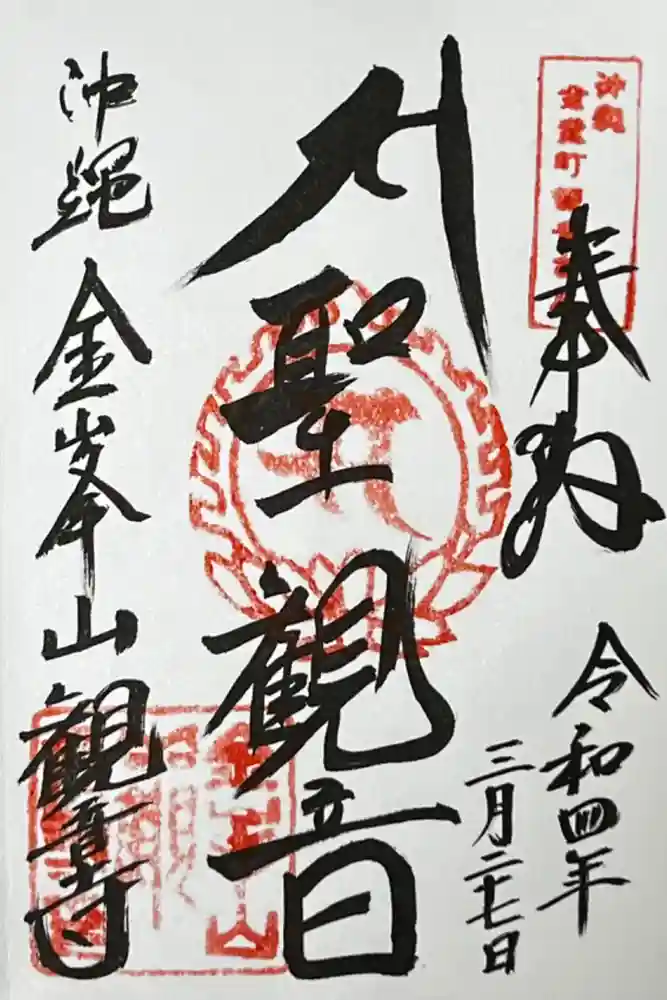 沖縄
奉拝
令和四年
三月二十七日
聖観音
沖縄 金峯山 観音寺